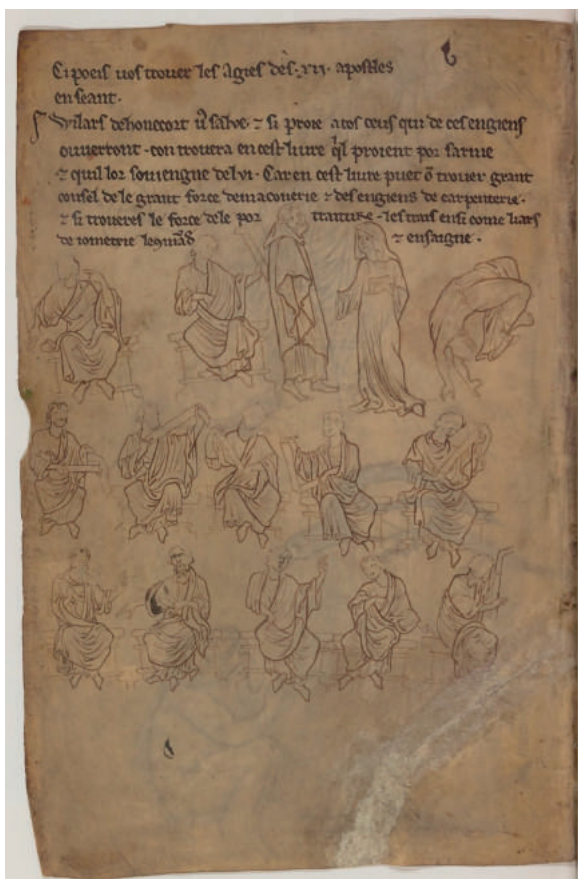 Ci poeis uos trouer les agies des .xii. apostles
en seant.
Wilars dehonecort u9 salue. ⁊ si proie atos ceus qui de ces engiens
ouuerront. con trouera en cest liure q̃l proient por sarme
⁊ quil lor souiengne de lui. Car en cest liure puet õ trouer grant
consel de le grant force demaconerie ⁊ des engiens de carpenterie.
⁊ si troueres le force dele por traiture. les trais ensi come li ars
de iometrie ⁊ ensaigne.